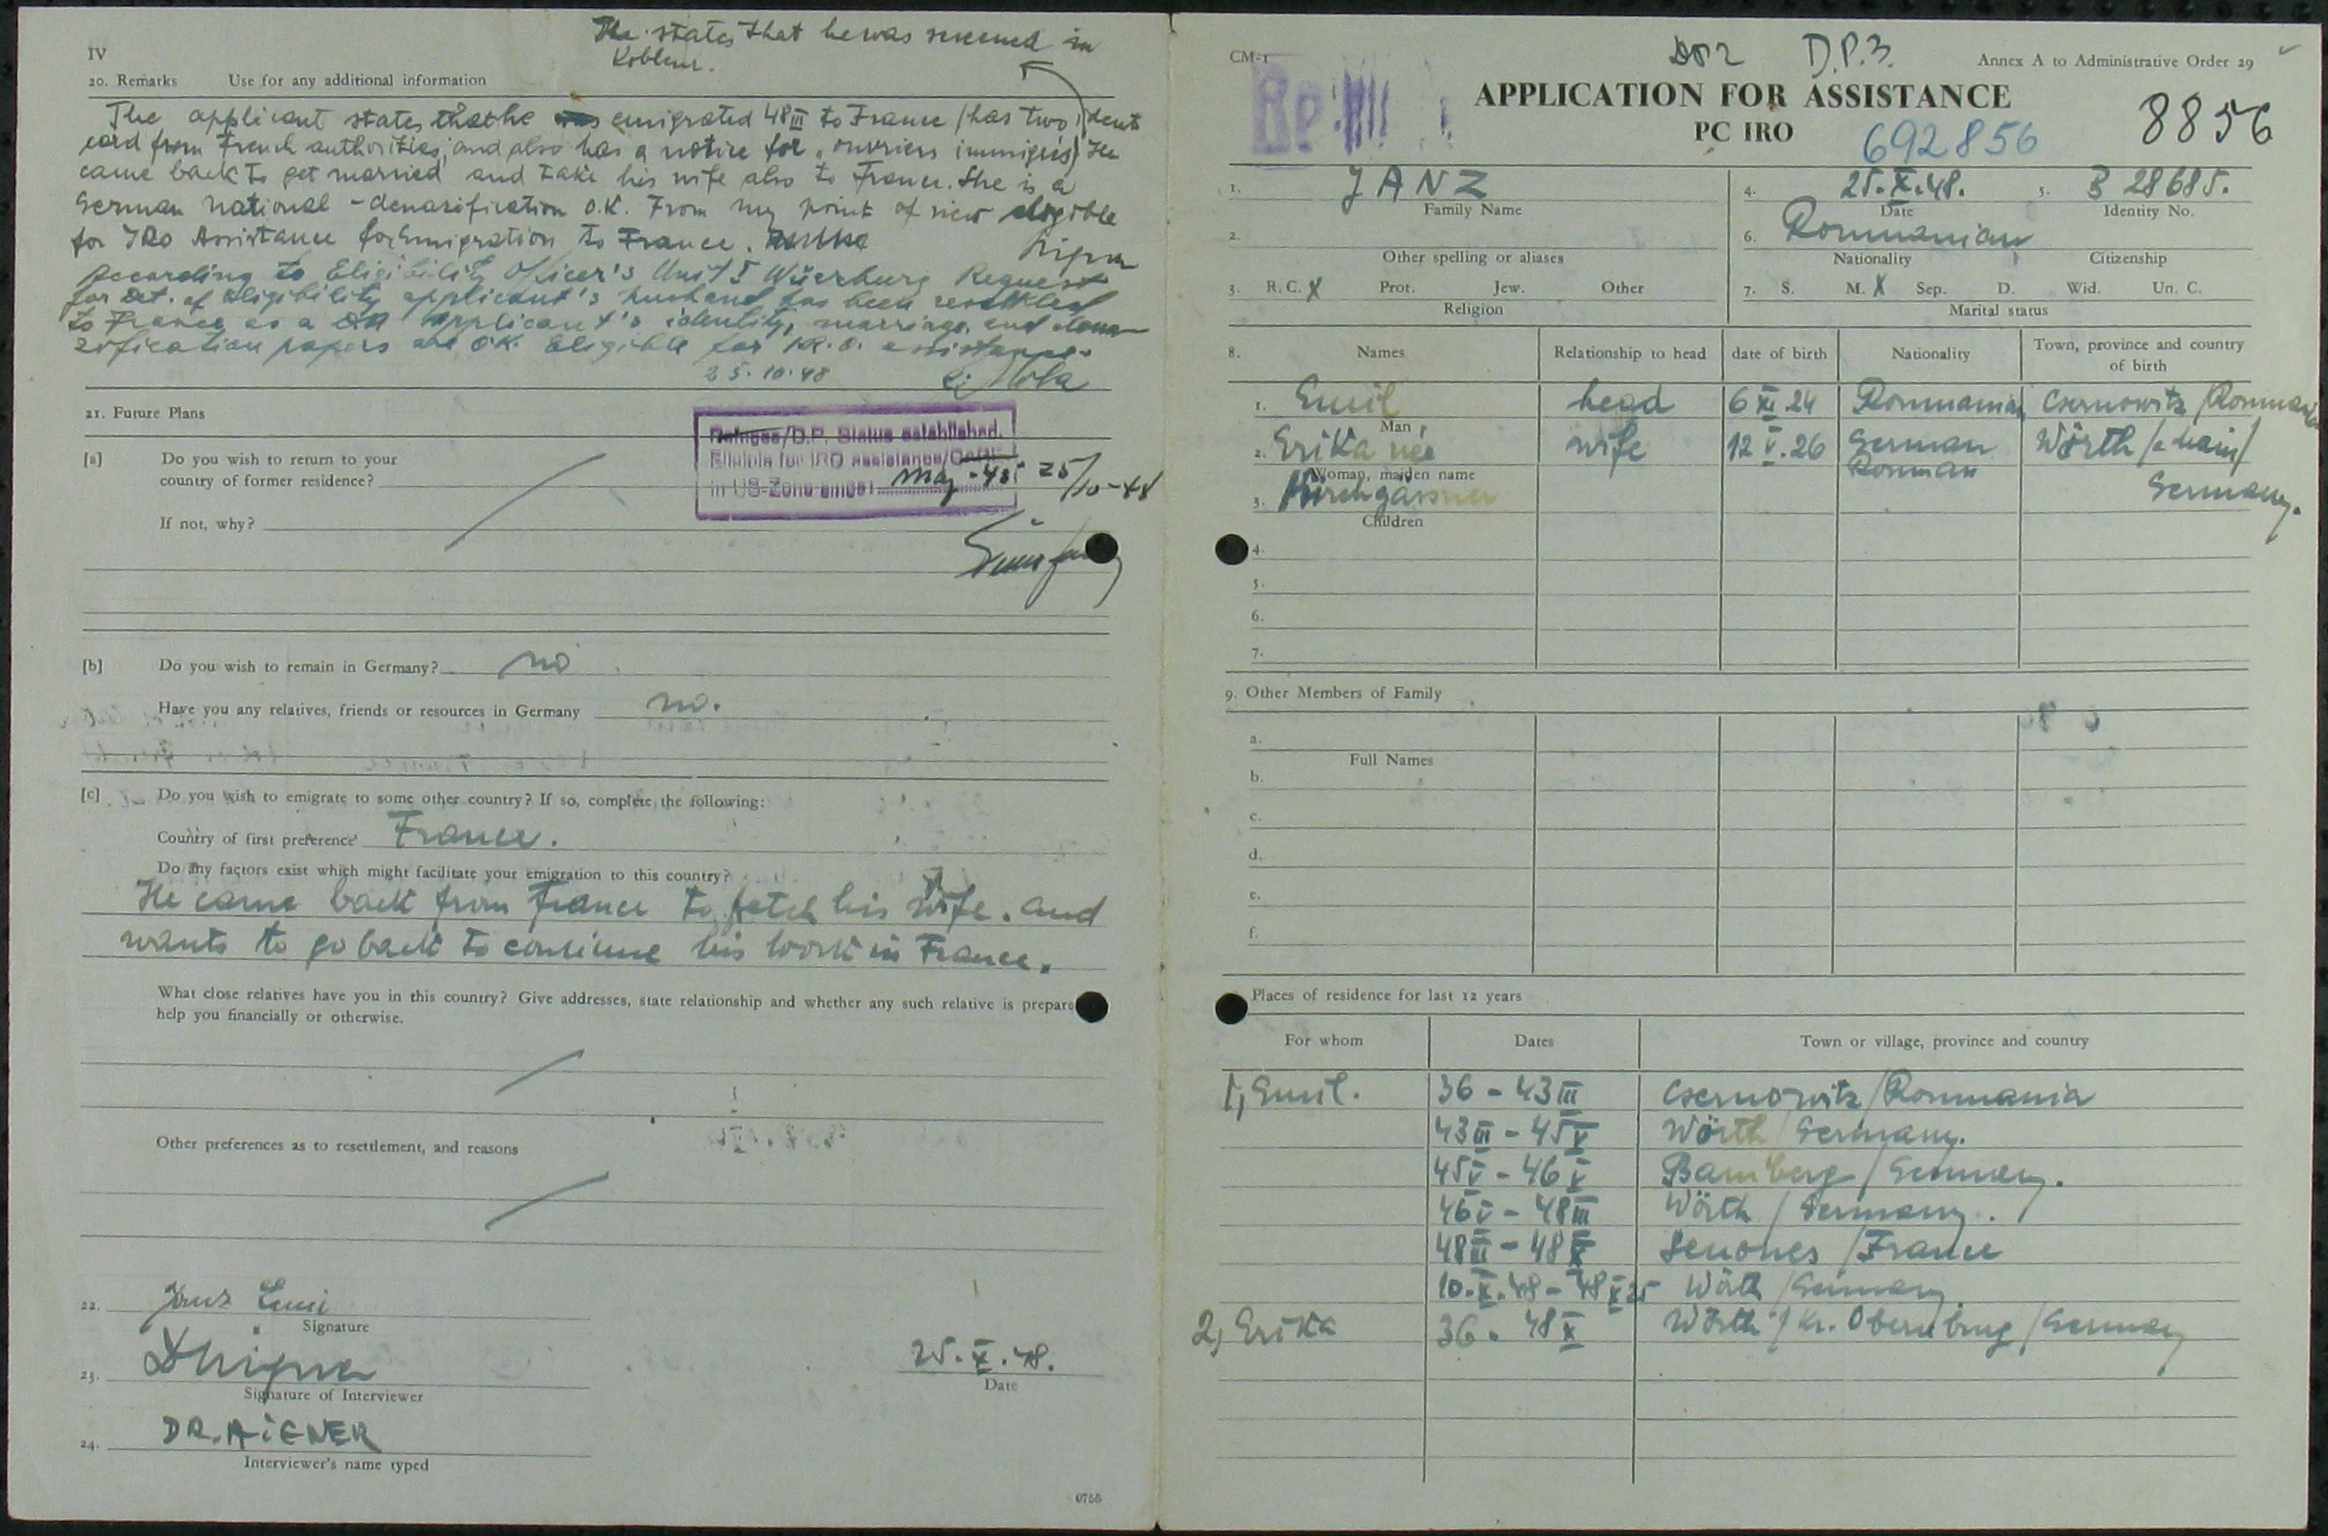 IV
He states that he was screened in
Koblenz.
20. Remarks Use for any additional information
The applicant states that he emigrated 48 III to France (has two ident
card from French authorities, and also has a notice for "ouvriers immigrés) He
came back to get married and take his wife also to France. She is a
German national - denazification O.K. From my point of view eligible
for IRO Assistance for Emigration to France.
According to Eligibility Officer's Unit 5 Wüerzburg Request
for Det. of Eligibility applicant's husband has been resettled
to France as a applicant's identity, marriage, and dena-
zification papers are O.K. Eligible for I.R.O. assistance.
25.10.48
21. Future Plans
Refugee/D.P. Status established.
Eligible for IRO assistance
in US-Zone since May - 45 25/10-48
[a] Do you wish to return to your
country of former residence?
If not, why?
[b] Do you wish to remain in Germany? no
Have you any relatives, friends or resources in Germany no.
[c] Do you wish to emigrate to some other country? If so, complete the following:
Country of first preference France.
Do any factors exist which might facilitate your emigration to this country?
He came back from France to fetch his wife. and
wants to go back to continue his work in France.
What close relatives have you in this country? Give addresses, state relationship and whether any such relative is prepare
help you financially or otherwise.
Other preferences as to resettlement, and reasons
22. Janz Emil
Signature
23.
Signature of Interviewer
25.X.48.
Date
24. DR. AIGNER
Interviewer's name typed
0755
CM-1
D.P.3.
Annex A to Administrative Order 29
APPLICATION FOR ASSISTANCE
PC IRO
692856
8856
1. JANZ
Family Name
4. 25.X.48.
Date
5. B 28685.
Identity No.
2.
Other spelling or aliases
6. Rommanian
Nationality Citizenship
3. R.C. X Prot. Jew. Other
Religion
7. S. M. X Sep. D. Wid. Un. C.
Marital status
8. Names Relationship to head date of birth Nationality Town, province and country
of birth
1. Emil head 6 XI 24 Rommanian Csernowitz /Rommania
Man
2. Erika née wife 12 V.26 German Wörth /a Main/
Woman, maiden name
3. Kirchgässner Germany.
Children
4.
5.
6.
7.
9. Other Members of Family
a.
Full Names
b.
c.
d.
e.
f.
Places of residence for last 12 years
For whom Dates Town or village, province and country
1, Emil. 36 - 43 III Csernowitz /Rommania
43 III - 45 V Wörth / Germany.
45 V - 46 V Bamberg / Germany.
46 V - 48 III Wörth / Germany.
48 III - 48 X Senones / France
10.X.48 - 48 X 25 Wörth / Germany
2, Erika 36 - 48 X Wörth / Kr. Obernburg / Germany